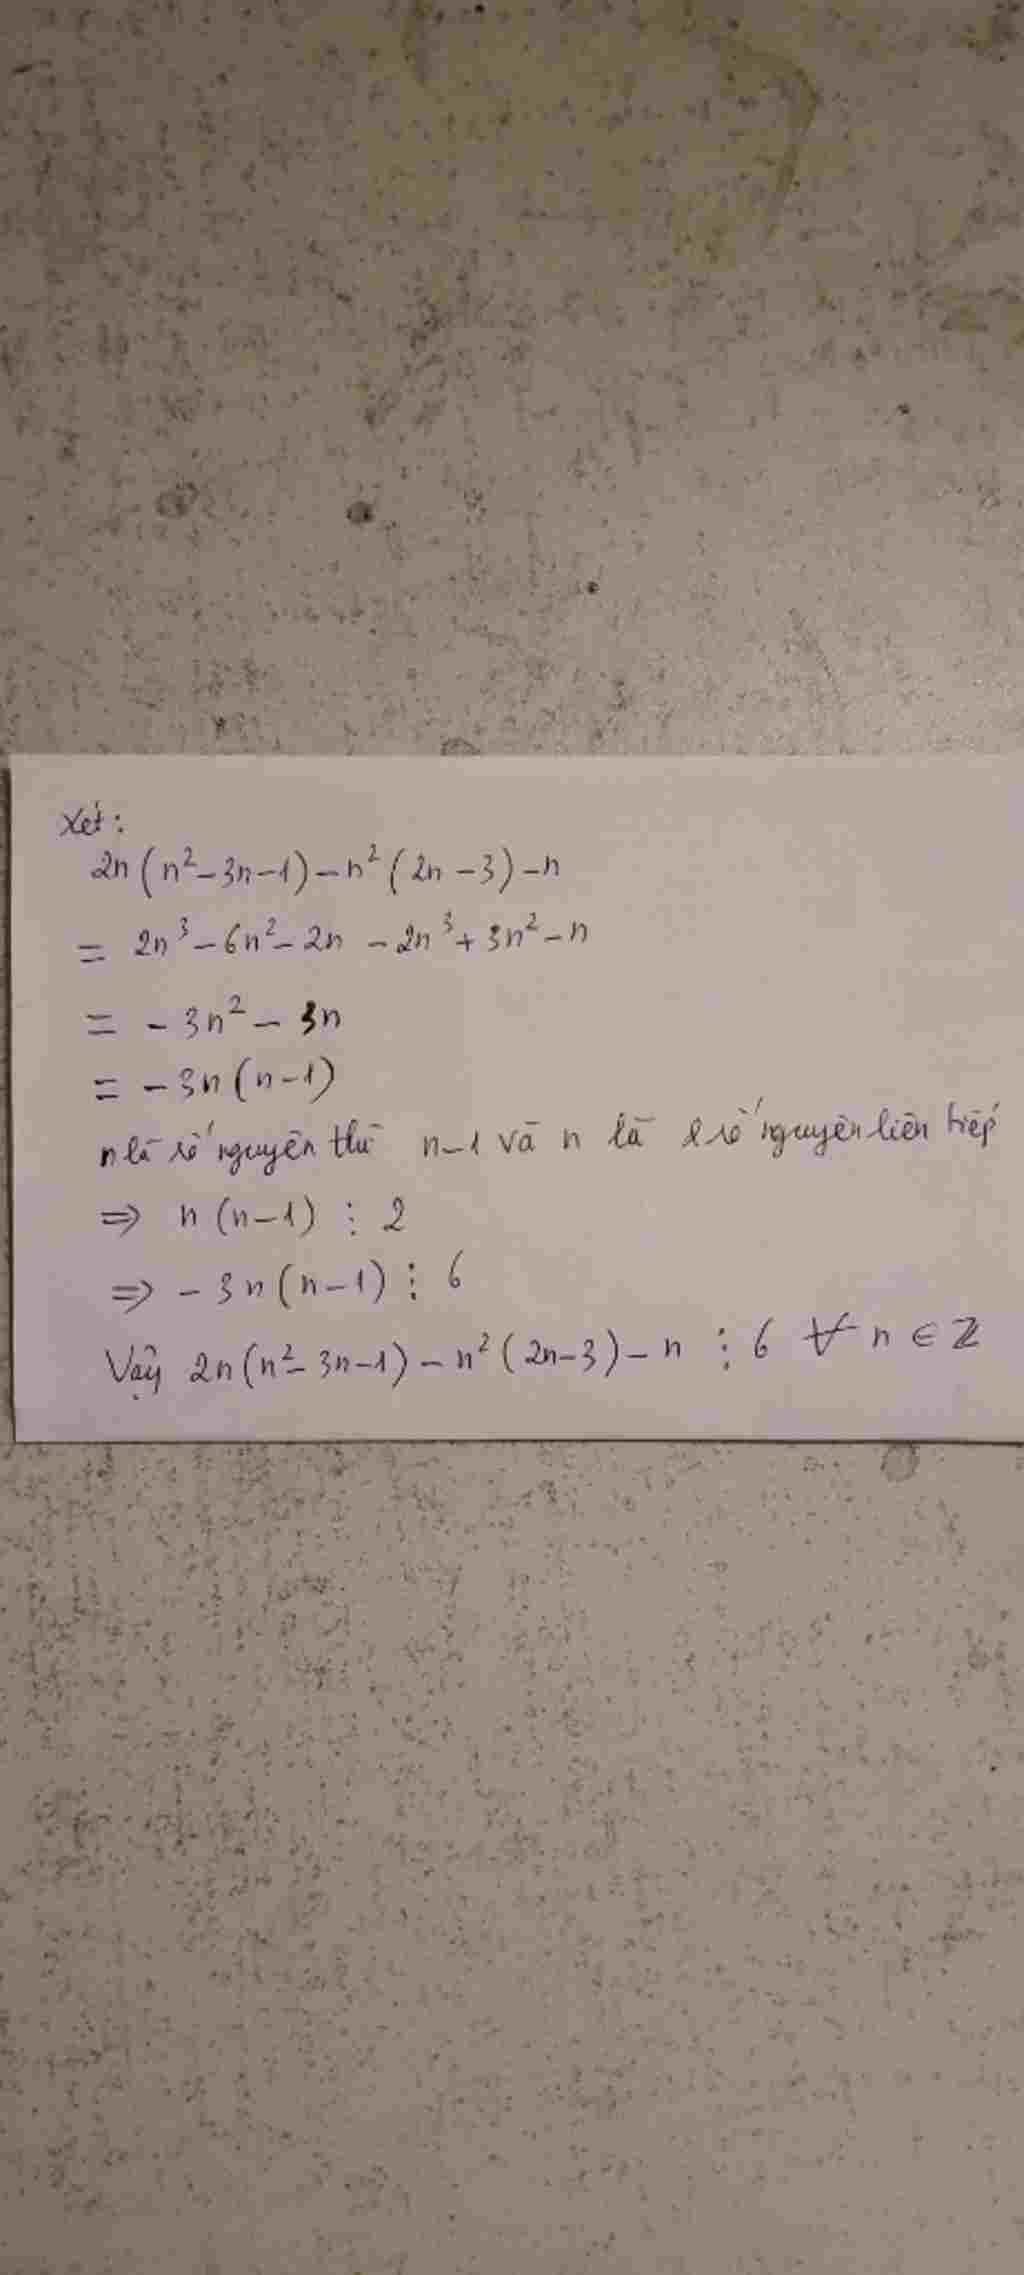 Xét:
2n(n²-3n-1)-n²(2n-3)-n
= 2n³-6n²-2n-2n³+3n²-n
= -3n²-3n
= -3n(n-1)
n là số nguyên thì n-1 và n là 2 số nguyên liên tiếp
⇒ n(n-1) ⋮ 2
⇒ -3n(n-1) ⋮ 6
Vậy 2n(n²-3n-1)-n²(2n-3)-n ⋮ 6 ∀ n ∈ Z